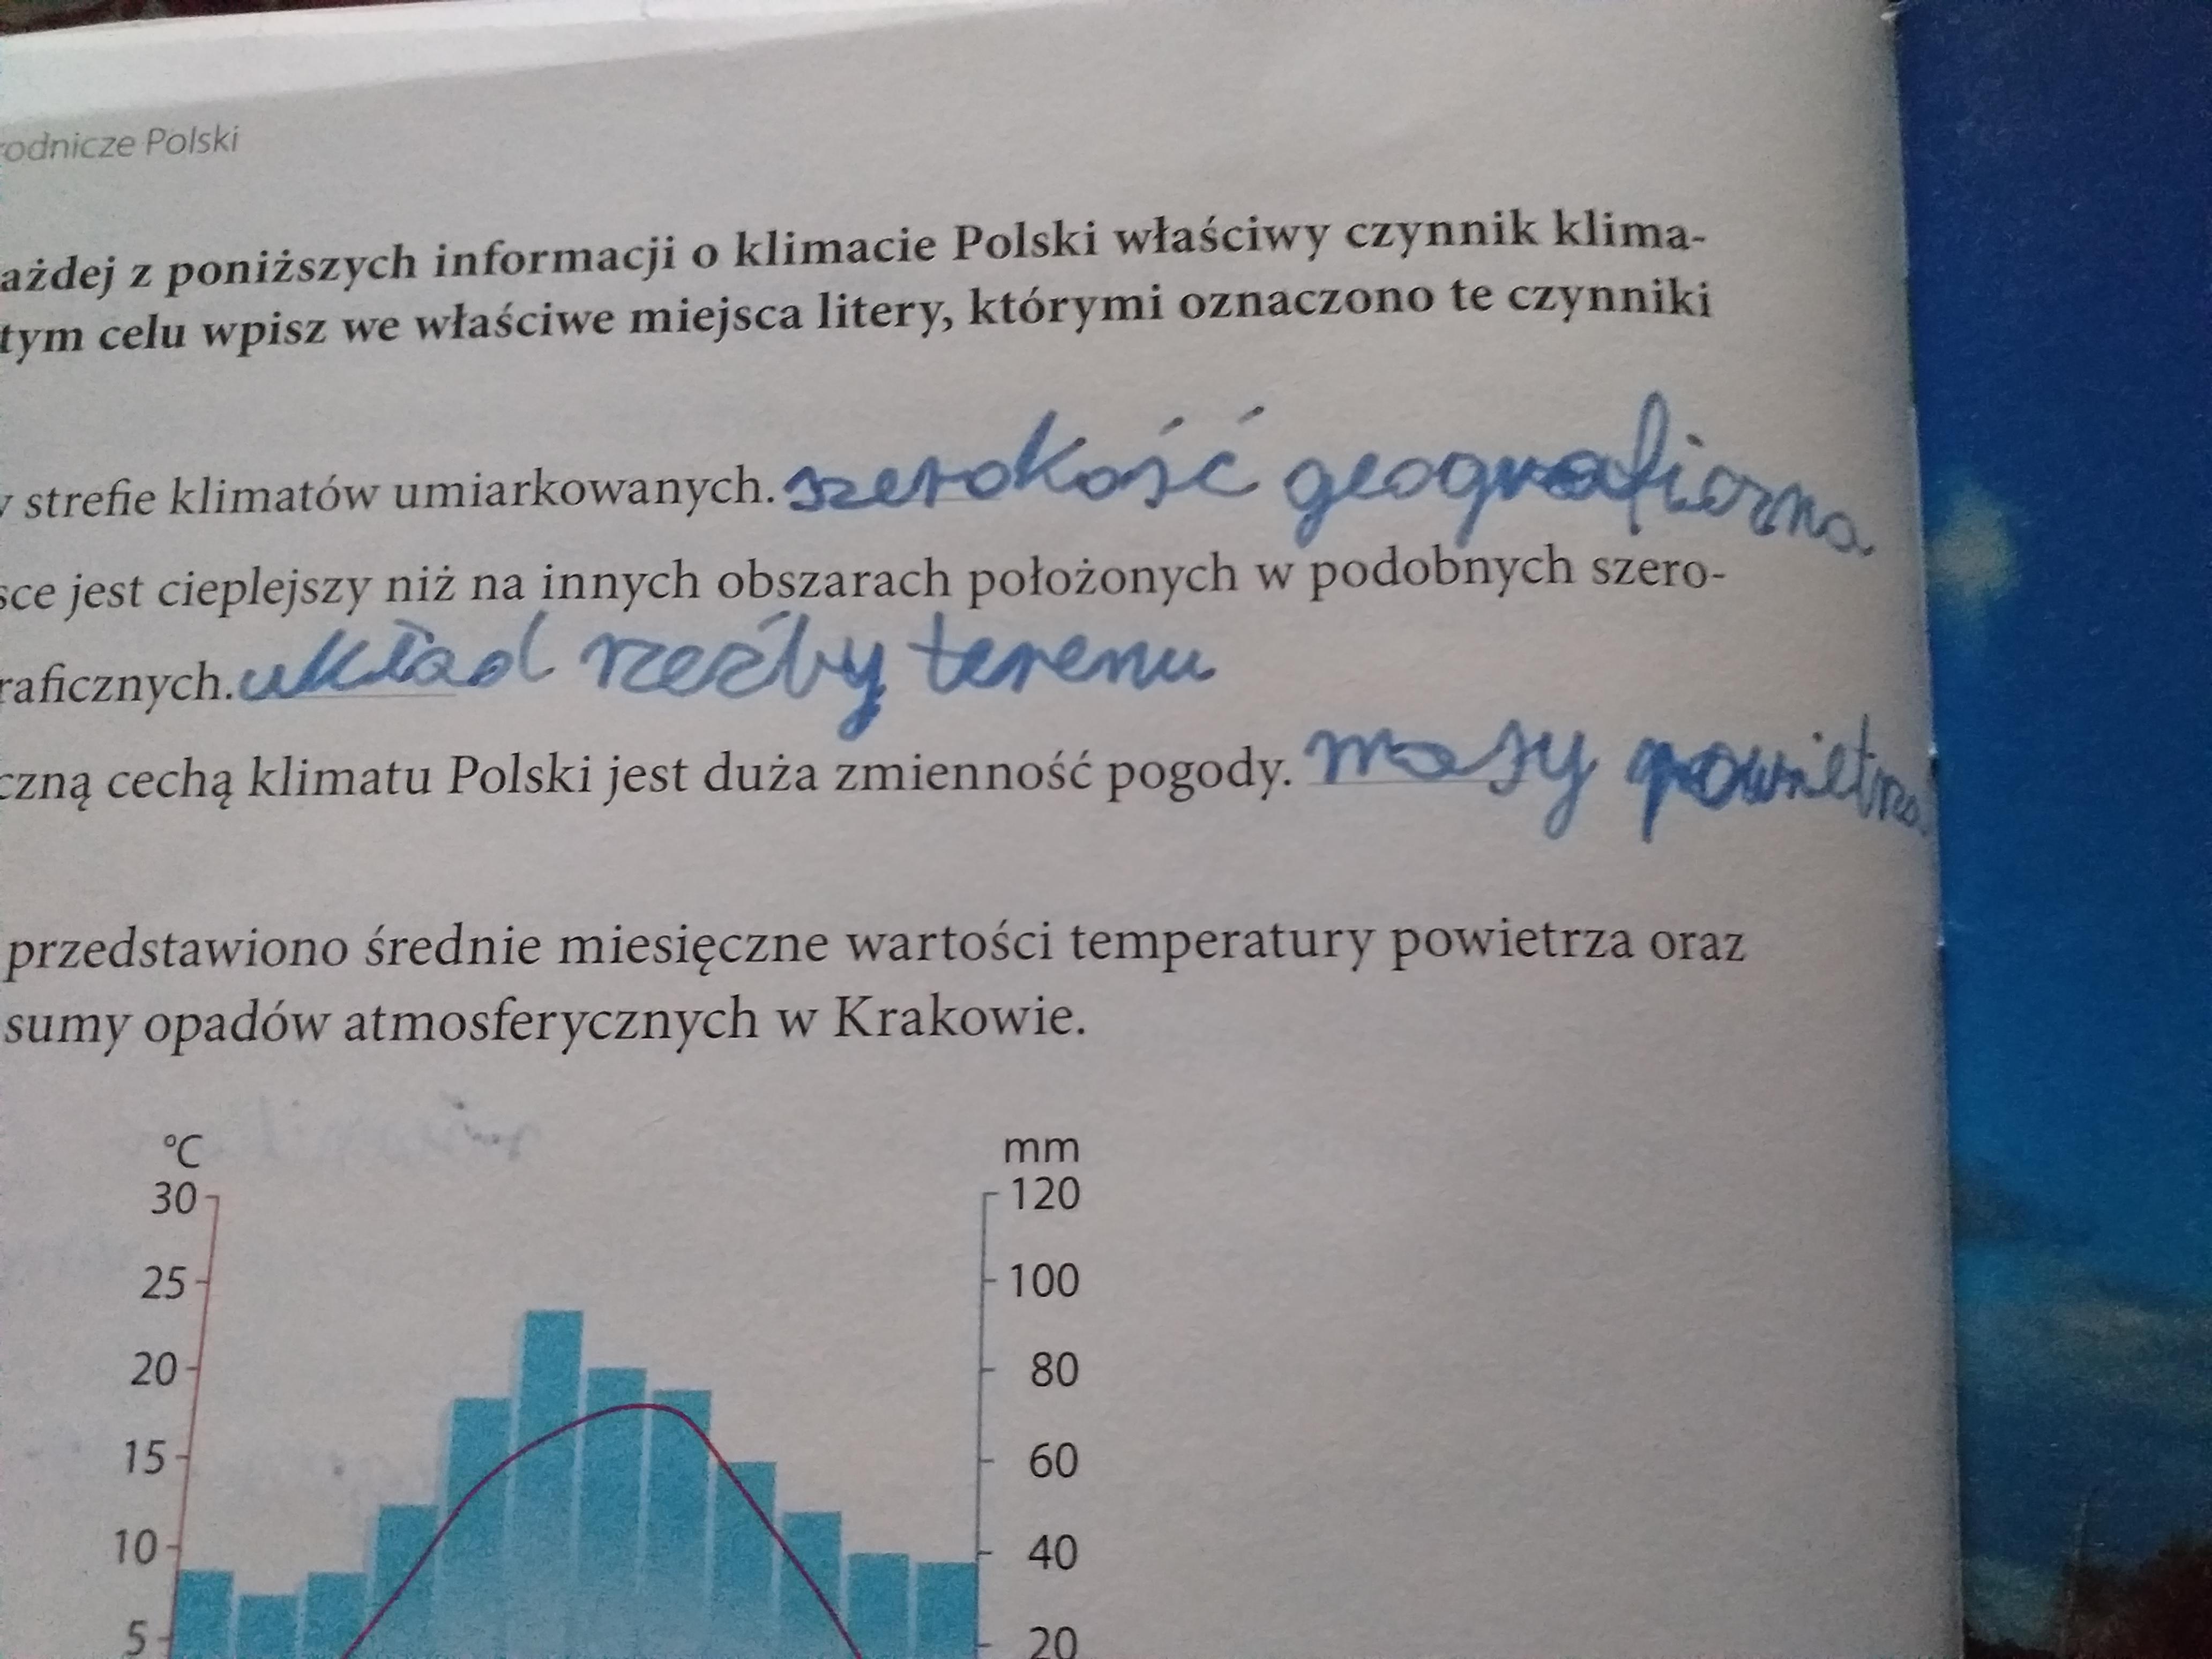 rodnicze Polski
ażdej z poniższych informacji o klimacie Polski właściwy czynnik klima-
tym celu wpisz we właściwe miejsca litery, którymi oznaczono te czynniki
w strefie klimatów umiarkowanych. szerokość geograficzna
sce jest cieplejszy niż na innych obszarach położonych w podobnych szero-
raficznych. układ rzeźby terenu
czną cechą klimatu Polski jest duża zmienność pogody. masy powietrza
przedstawiono średnie miesięczne wartości temperatury powietrza oraz
sumy opadów atmosferycznych w Krakowie.
°C mm
30 120
25 100
20 80
15 60
10 40
5 20